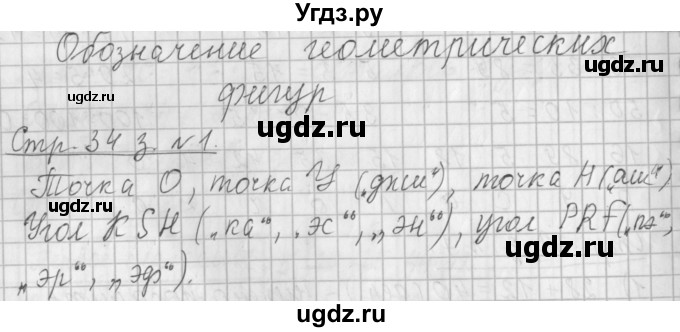 Угдз.ру
Обозначение геометрических
фигур
Стр. 34 з. №1.
Точка О, точка У („джи“), точка Н („аш“)
Угол KSH („ка“, „эс“, „эн“), угол PRF („пэ“,
„эр“, „эф“).
ugdz.ru
ugdz.ru
ugdz.ru
ugdz.ru
ugdz.ru
ugdz.ru
ugdz.ru
ugdz.ru